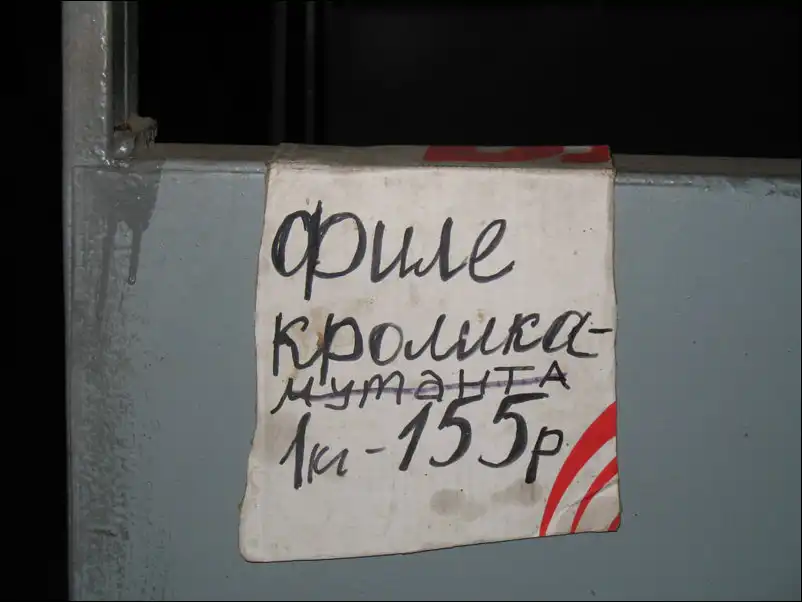 Филе
кролика-
мутанта
1кг-155р